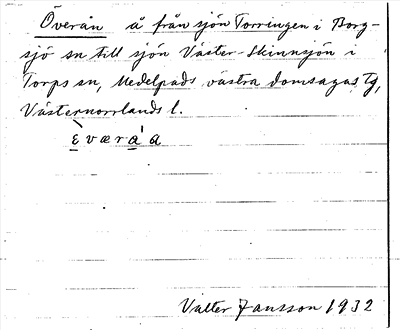 Överån å från sjön Torringen i Borg-
sjö sn till sjön Väster-Skinnsjön i
Torps sn, Medelpads västra domsagas tg,
Västernorrlands l.
Valter Jansson 1932